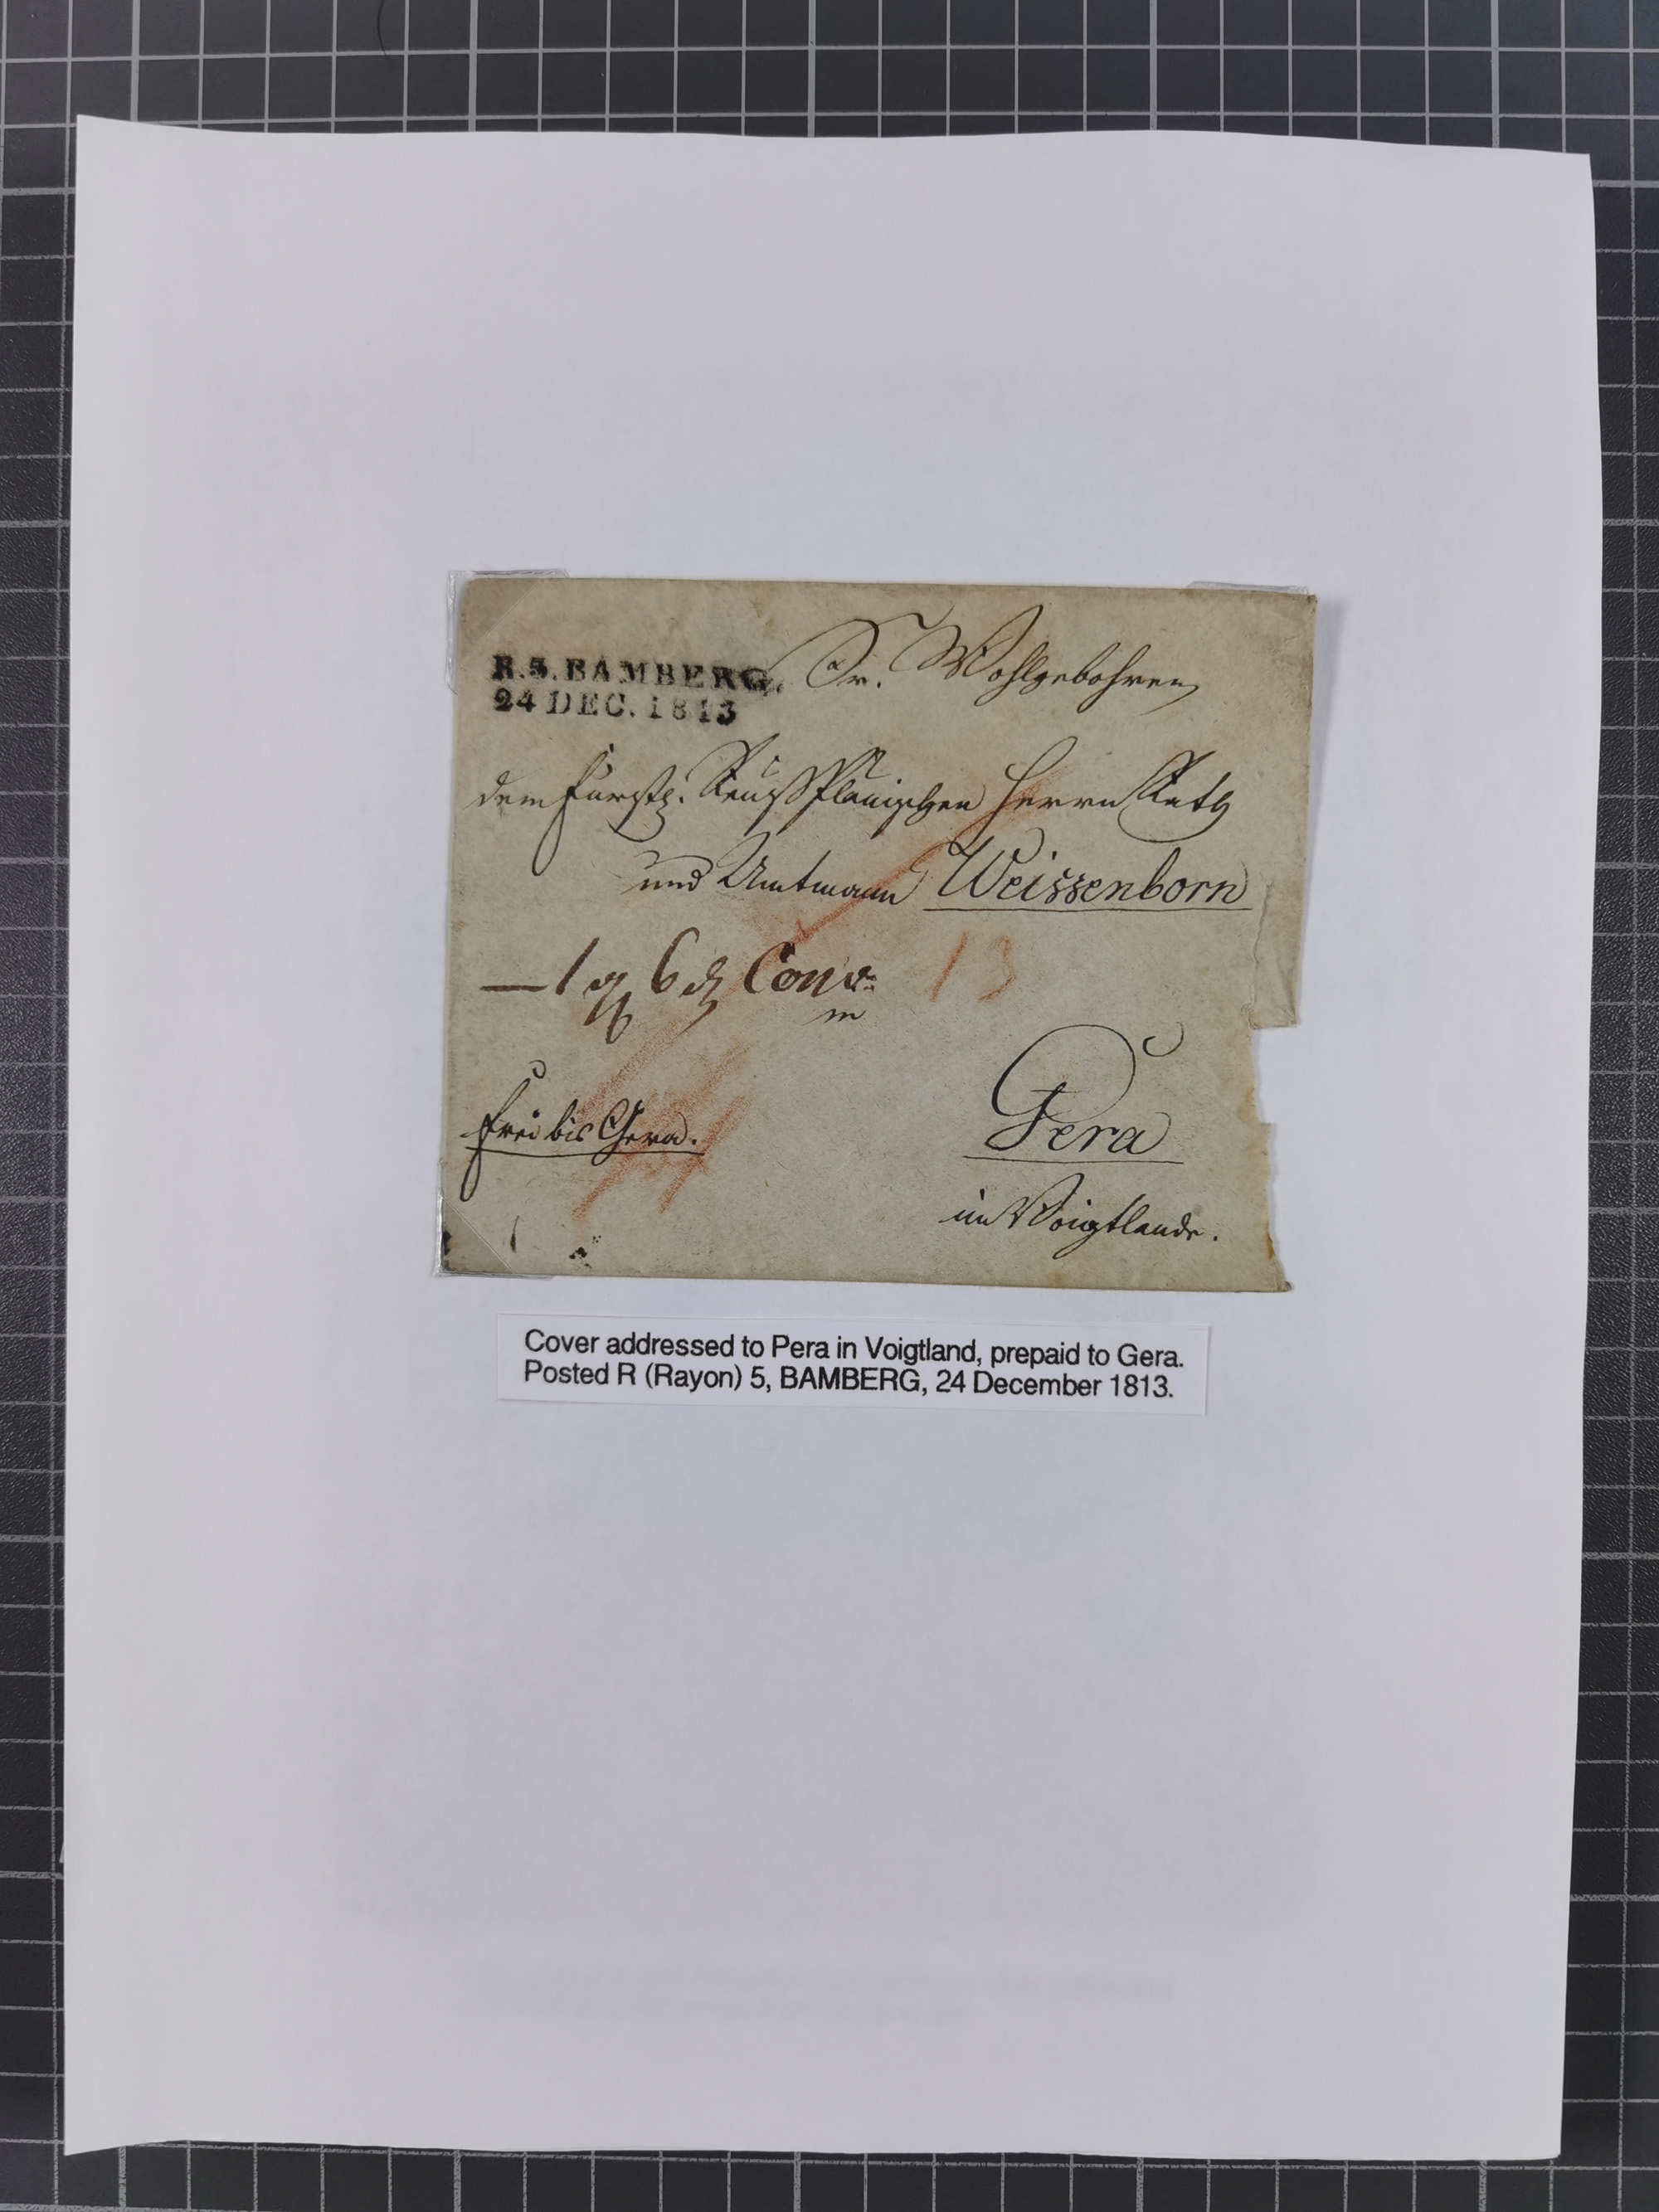 R.5.BAMBERG.
24 DEC. 1813
Sr. Wohlgebohren
dem Fürstl. Reuß Plauischen Herrn Rath
und Amtmann Weissenborn
— 1 g 6 d Conv: 13
in
frei bis Gera.
Gera
im Voigtlande.
Cover addressed to Pera in Voigtland, prepaid to Gera.
Posted R (Rayon) 5, BAMBERG, 24 December 1813.